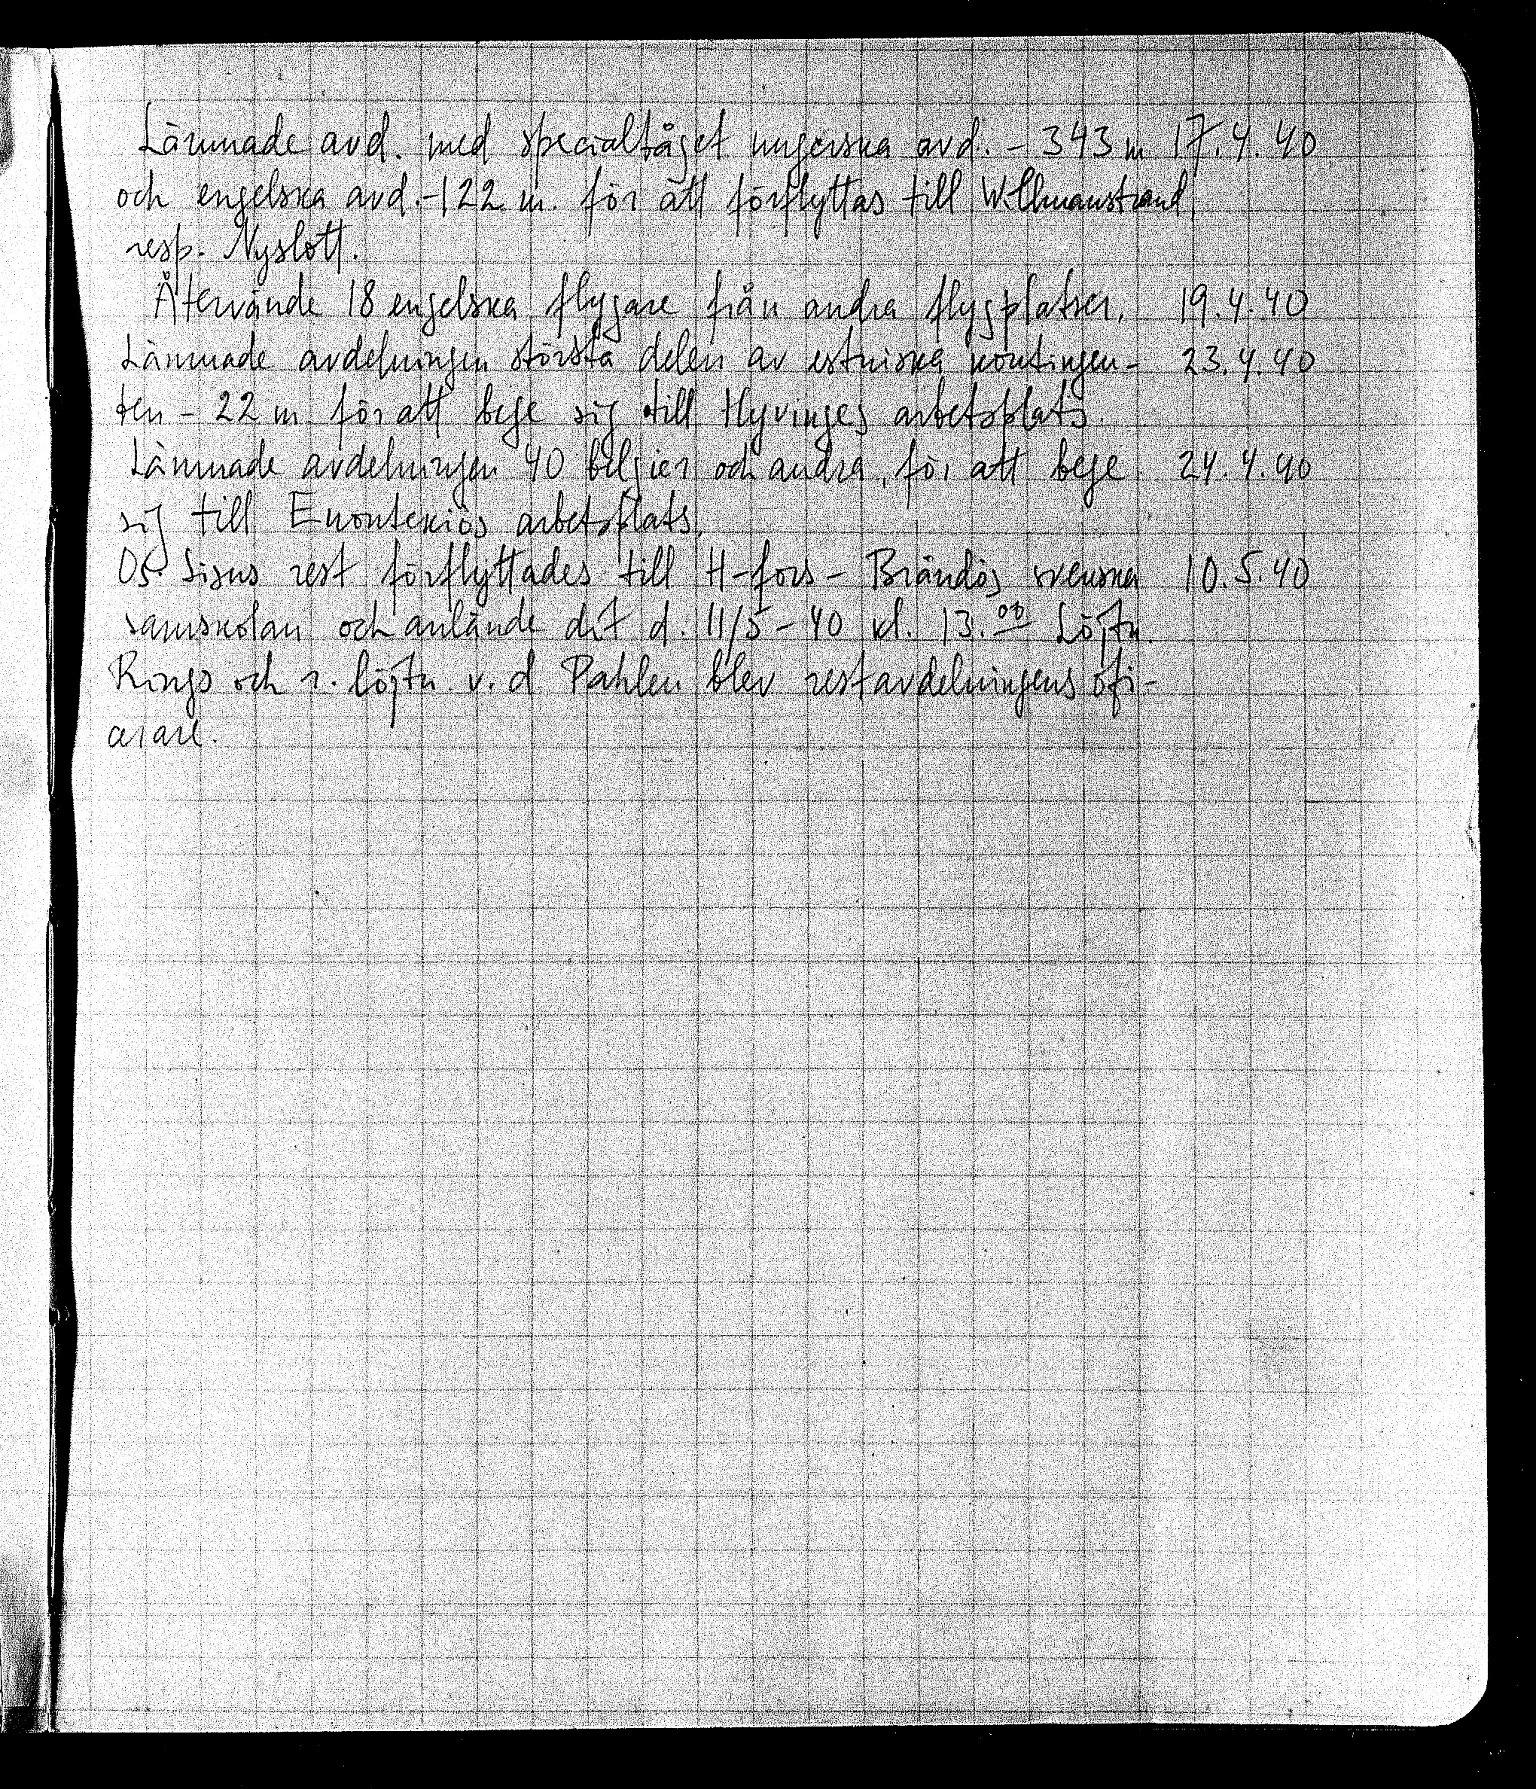 Lämnade avd. med specialtåget ungerska avd. - 343 m 17.4.40
och engelska avd. - 122 m. för att förflyttas till W:llmanstrand
resp. Nyslott.
Återvände 18 engelska flygare från andra flygplatser. 19.4.40
Lämnade avdelningen största delen av estniska kontingen- 23.4.40
ten - 22 m. för att bege sig till Hyvinges arbetsplats.
Lämnade avdelningen 40 belgier och andra, för att bege 24.4.40
sig till Enontekiös arbetsplats.
Os. Sisus rest förflyttades till H-fors - Brändös svenska 10.5.40
samskolan och anlände dit d. 11/5 - 40 kl. 13.00 Löjtn.
Rings och r. löjtn v. d Pahlen blev restavdelningens ofi-
cerare.